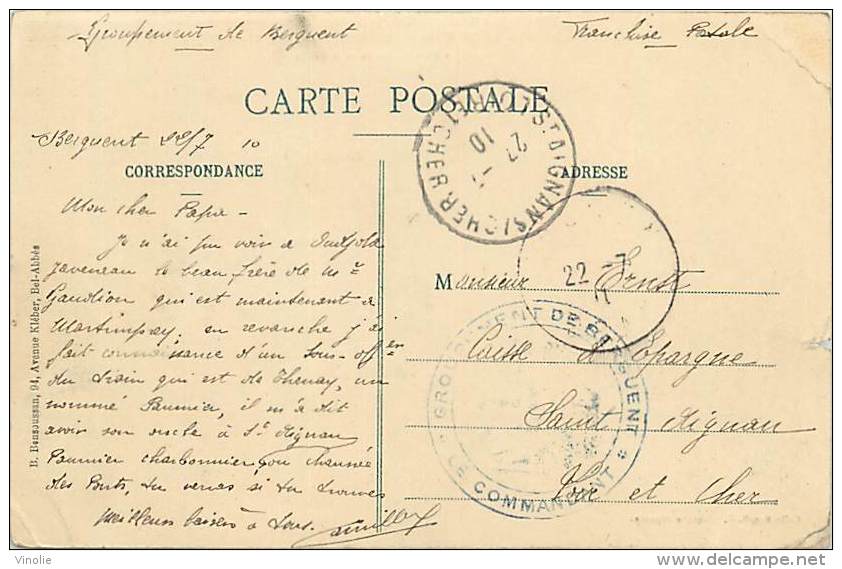 Groupement de Berguent
Franchise Postale
CARTE POSTALE
Berguent 22/7 10
CORRESPONDANCE
ADRESSE
Mon cher Papa -
Je n'ai pu voir à
Javeneau le beau frère de Mr
Gaudion qui est maintenant à
Martimpey, en revanche j'ai
fait connaissance d'un Sous-offer
du train qui est de Thenay, un
nommé Paumier, il m'a dit
avoir son oncle à St Aignan
Paumier charbonnier, ou chaussée
des Ponts, tu verras si tu trouves
Meilleurs baisers à tous.
Monsieur Ernst
Caisse d'Epargne
Saint Aignan
Loir et Cher
ST AIGNANS/CHER
27 -7
10
22 -7
GROUPEMENT DE BERGUENT
LE COMMANDANT
B. Bensoussan, 94, Avenue Kléber, Bel-Abbès
Vinolie
http://vinolie.delcampe.net